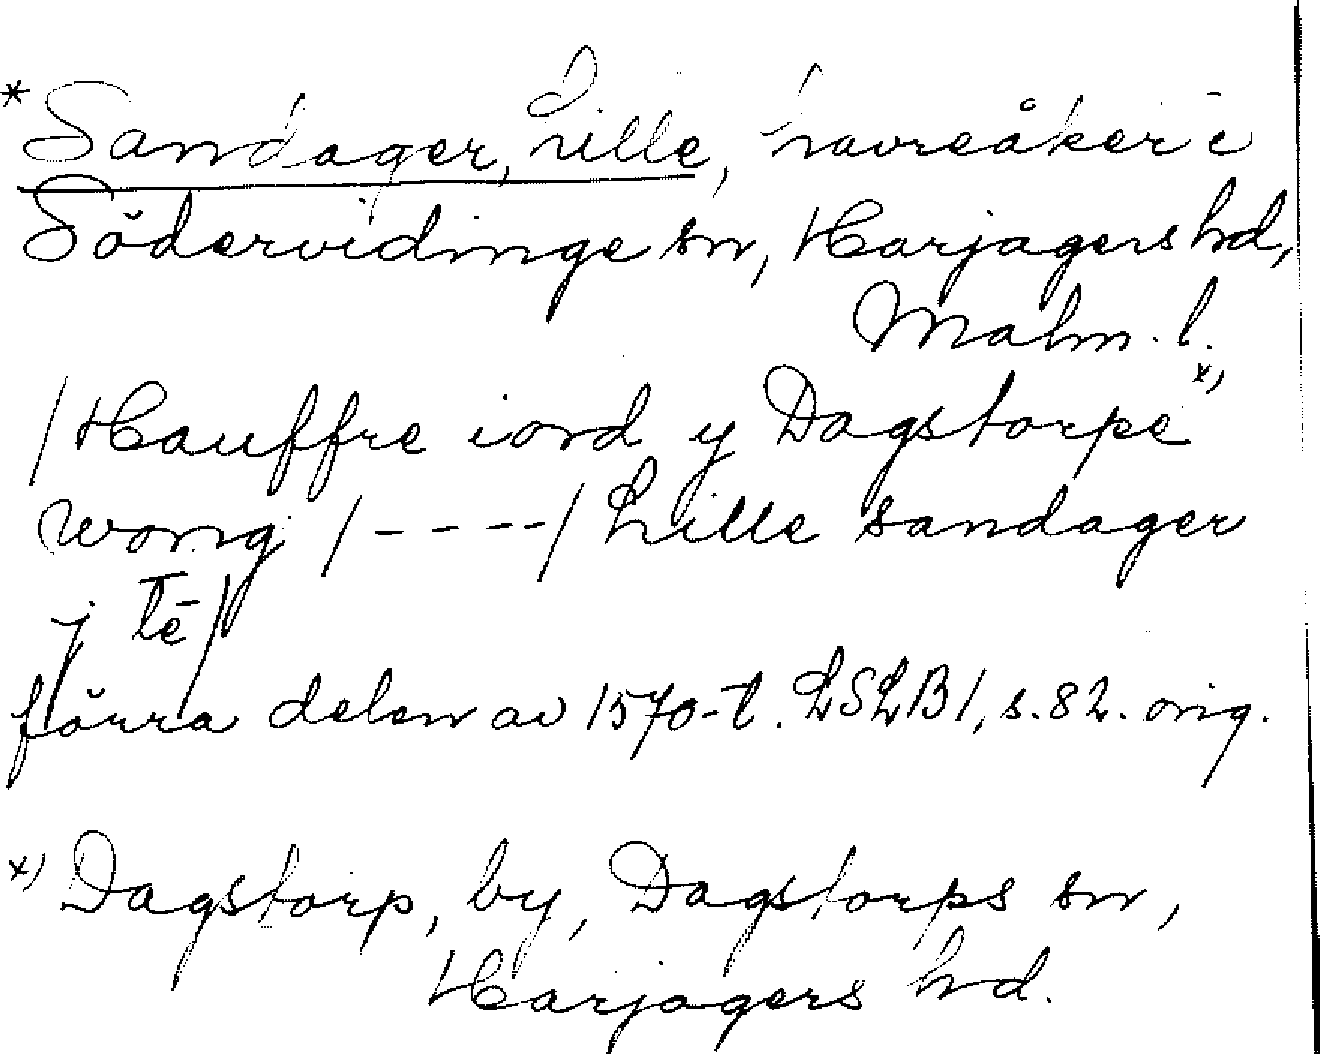 * Sandager, Lille, havreåker i
Södervidinge sn, Harjagers hd,
Malm. l.
/Hauffre iord y Dagstorpe x)
wong /----/ Lille sandager
j tē/
förra delen av 1570-t. LSLB1, s. 82. orig.
x) Dagstorp, by, Dagstorps sn,
Harjagers hd.